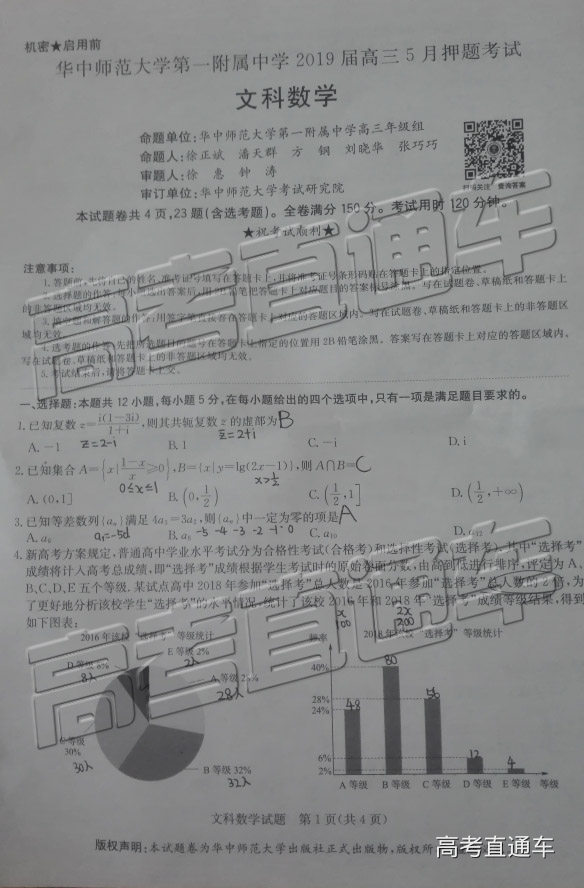 机密★启用前
华中师范大学第一附属中学2019届高三5月押题考试
文科数学
命题单位:华中师范大学第一附属中学高三年级组
命题人:徐正斌 潘天群 方 钢 刘晓华 张巧巧
审题人:徐 惠 钟 涛
审订单位:华中师范大学考试研究院
扫码关注 查询答案
本试题卷共4页,23题(含选考题)。全卷满分150分。考试用时120分钟。
★祝考试顺利★
注意事项:
1.答题前,先将自己的姓名、准考证号填写在答题卡上,并将准考证号条形码贴在答题卡上的指定位置。
2.选择题的作答:每小题选出答案后,用2B铅笔把答题卡上对应题目的答案标号涂黑。写在试题卷、草稿纸和答题卡上
的非答题区域均无效。
3.填空题和解答题的作答:用签字笔直接答在答题卡上对应的答题区域内。写在试题卷、草稿纸和答题卡上的非答题区
域均无效。
4.选考题的作答:先把所选题目的题号在答题卡上指定的位置用2B铅笔涂黑。答案写在答题卡上对应的答题区域内,
写在试题卷、草稿纸和答题卡上的非答题区域均无效。
5.考试结束后,请将答题卡上交。
一、选择题:本题共12小题,每小题5分,在每小题给出的四个选项中,只有一项是满足题目要求的。
1.已知复数z=i(1-3i)/1+i,则其共轭复数z̄的虚部为B
A.-1 z=2-i B.1 z̄=2+i C.-i D.i
2.已知集合A={x|1-x/x≥0},B={x|y=lg(2x-1)},则A∩B=C
0≤x≤1 x>1/2
A.(0,1] B.(0,1/2) C.(1/2,1] D.(1/2,+∞)
3.已知等差数列{aₙ}满足4a₃=3a₂,则{aₙ}中一定为零的项是A
A.a₆ a₁=-5d B.a₈ -5 -4 -3 -2 -1 0 C.a₁₀ D.a₁₂
4.新高考方案规定,普通高中学业水平考试分为合格性考试(合格考)和选择性考试(选择考).其中“选择考”
成绩将计入高考总成绩,即“选择考”成绩根据学生考试时的原始卷面分数,由高到低进行排序,评定为A、
B、C、D、E五个等级.某试点高中2018年参加“选择考”总人数是2016年参加“选择考”总人数的2倍,为
了更好地分析该校学生“选择考”的水平情况,统计了该校2016年和2018年“选择考”成绩等级结果,得到
如下图表:
x 2x
100 200
2016年该校“选择考”等级统计
D等级 8%
8人
E等级 2%
2人
A等级 28%
28人
C等级
30%
30人
B等级 32%
32人
频率 2018年该校“选择考”等级统计
40%
28%
24%
6%
2%
48 80 56 12 4
A等级 B等级 C等级 D等级 E等级 等级
文科数学试题 第1页(共4页)
版权声明:本试题卷为华中师范大学出版社正式出版物,版权所
高考直通车
高考直通车
高考直通车